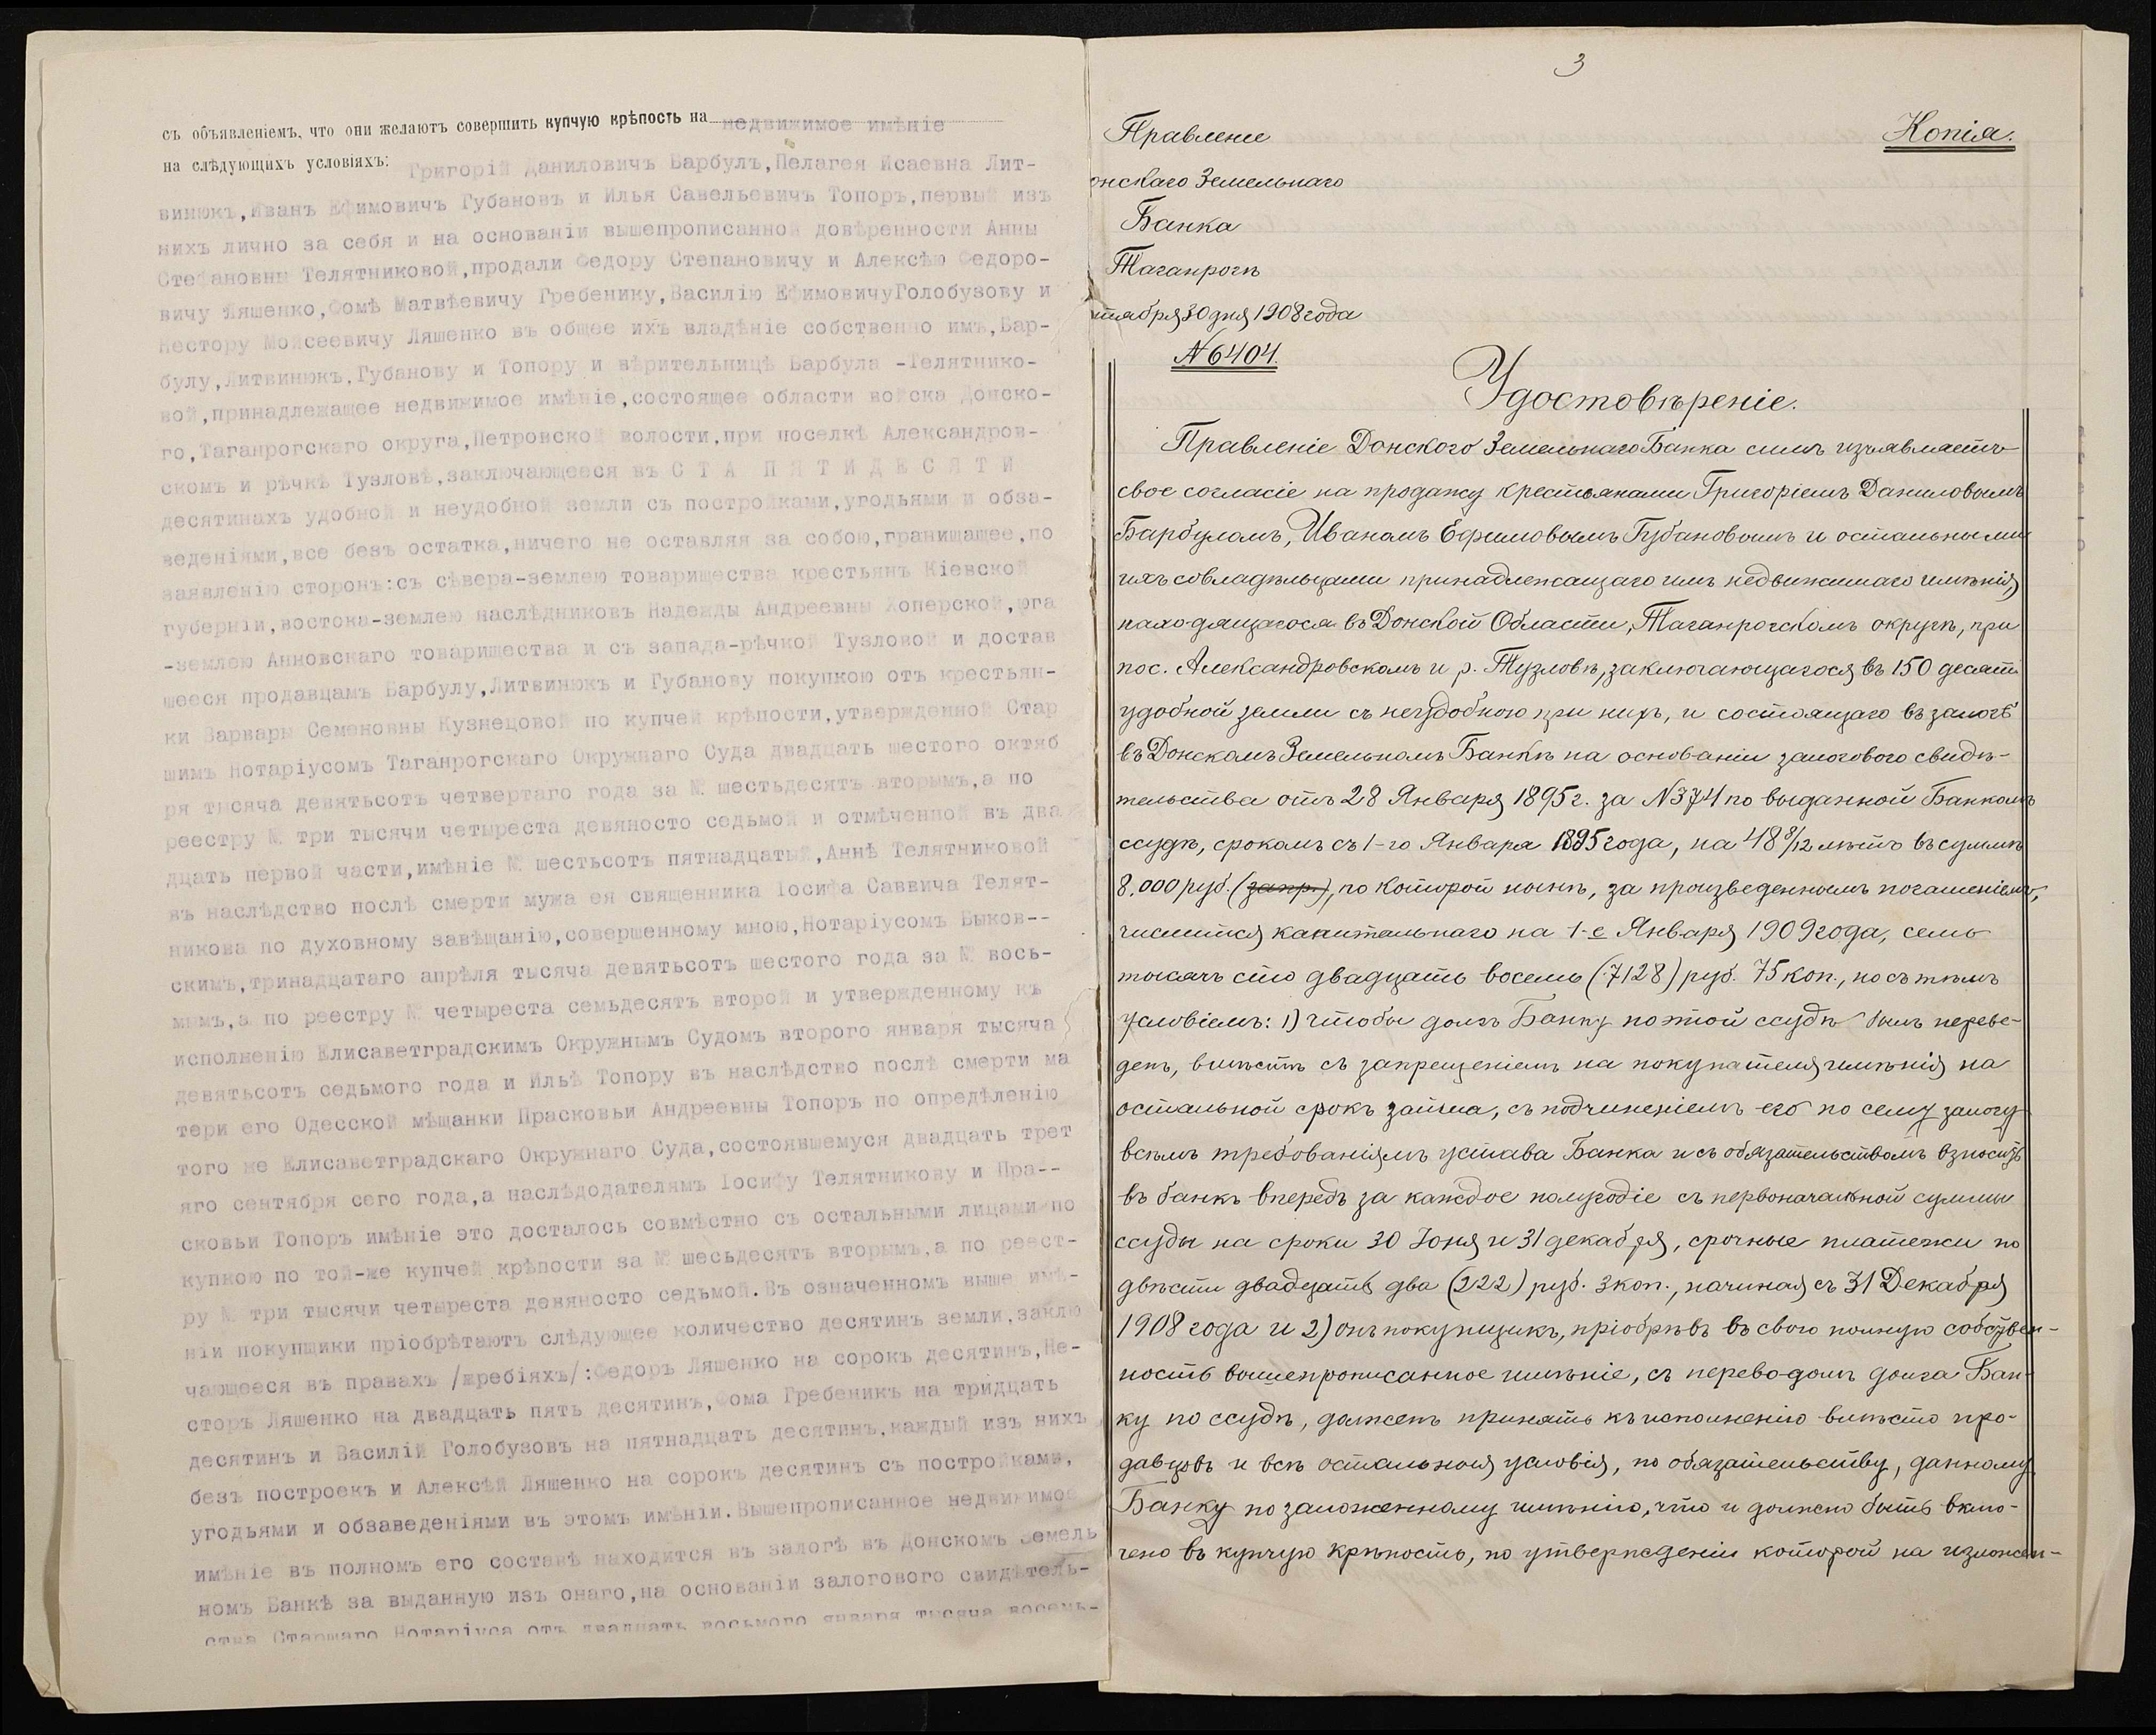 съ объявленіемъ, что они желаютъ совершить купчую крѣпость на недвижимое имѣніе
на слѣдующихъ условіяхъ: Григорій Даниловичъ Барбулъ,Пелагея Исаевна Лит-
винюкъ,Иванъ Ефимовичъ Губановъ и Илья Савельевичъ Топоръ,первый изъ
нихъ лично за себя и на основаніи вышепрописанной довѣренности Анны
Стефановны Телятниковой,продали Федору Степановичу и Алексѣю Федоро-
вичу Ляшенко,Фомѣ Матвѣевичу Гребенику,Василію ЕфимовичуГолобузову и
Нестору Мойсеевичу Ляшенко въ общее ихъ владѣніе собственно имъ,Бар-
булу,Литвинюкъ,Губанову и Топору и вѣрительницѣ Барбула -Телятнико-
вой,принадлежащее недвижимое имѣніе,состоящее области войска Донско-
го,Таганрогскаго округа,Петровской волости,при поселкѣ Александров-
скомъ и рѣчкѣ Тузловѣ,заключающееся въ С Т А П Я Т И Д Е С Я Т И
десятинахъ удобной и неудобной земли съ постройками,угодьями и обза-
веденіями,все безъ остатка,ничего не оставляя за собою,граничащее,по
заявленію сторонъ:съ сѣвера-землею товарищества крестьянъ Кіевской
губерніи,востока-землею наслѣдниковъ Надежды Андреевны Хоперской,юга
-землею Анновскаго товарищества и съ запада-рѣчкой Тузловой и достав
шееся продавцамъ Барбулу,Литвинюкъ и Губанову покупкою отъ крестьян-
ки Варвары Семеновны Кузнецовой по купчей крѣпости,утвержденной Стар
шимъ Нотаріусомъ Таганрогскаго Окружнаго Суда двадцать шестого октяб
ря тысяча девятьсотъ четвертаго года за № шестьдесятъ вторымъ,а по
реестру № три тысячи четыреста девяносто седьмой и отмѣченной въ два
дцать первой части,имѣніе № шестьсотъ пятнадцатый,Аннѣ Телятниковой
въ наслѣдство послѣ смерти мужа ея священника Іосифа Саввича Телят-
никова по духовному завѣщанію,совершенному мною,Нотаріусомъ Быков--
скимъ,тринадцатаго апрѣля тысяча девятьсотъ шестого года за № вось-
мымъ,а по реестру № четыреста семьдесятъ второй и утвержденному къ
исполненію Елисаветградскимъ Окружнымъ Судомъ второго января тысяча
девятьсотъ седьмого года и Ильѣ Топору въ наслѣдство послѣ смерти ма
тери его Одесской мѣщанки Прасковьи Андреевны Топоръ по опредѣленію
того же Елисаветградскаго Окружнаго Суда,состоявшемуся двадцать трет
яго сентября сего года,а наслѣдодателямъ Іосифу Телятникову и Пра--
сковьи Топоръ имѣніе это досталось совмѣстно съ остальными лицами по
купкою по той-же купчей крѣпости за № шесьдесятъ вторымъ,а по реест-
ру № три тысячи четыреста девяносто седьмой.Въ означенномъ выше имѣ-
ніи покупщики пріобрѣтаютъ слѣдующее количество десятинъ земли,заклю
чающееся въ правахъ /жребіяхъ/:Федоръ Ляшенко на сорокъ десятинъ,Не-
сторъ Ляшенко на двадцать пять десятинъ,Фома Гребеникъ на тридцать
десятинъ и Василій Голобузовъ на пятнадцать десятинъ,каждый изъ нихъ
безъ построекъ и Алексѣй Ляшенко на сорокъ десятинъ съ постройками,
угодьями и обзаведеніями въ этомъ имѣніи.Вышепрописанное недвижимое
имѣніе въ полномъ его составѣ находится въ залогѣ въ Донскомъ Земель
номъ Банкѣ за выданную изъ онаго,на основаніи залогового свидѣтель-
ства Старшаго Нотаріуса отъ двадцать восьмого января тысяча восемь-
3
Правленіе
Копія.
онскаго Земельнаго
Банка
Таганрогъ
тября 30 дня 1908 года
№ 6404.
Удостовѣреніе.
Правленіе Донского Земельнаго Банка симъ изъявляетъ
свое согласіе на продажу крестьянами Григоріемъ Даниловымъ
Барбуломъ, Иваномъ Ефимовымъ Губановымъ и остальными
ихъ совладѣльцами принадлежащаго имъ недвижимаго имѣнія
находящагося въ Донской Области, Таганрогскомъ округѣ, при
пос. Александровскомъ и р. Тузловѣ, заключающагося въ 150 десят.
удобной земли съ неудобною при нихъ, и состоящаго въ залогѣ
въ Донскомъ Земельномъ Банкѣ на основаніи залогового свидѣ-
тельства отъ 28 Января 1895 г. за № 374 по выданной Банкомъ
ссудѣ, срокомъ съ 1-го Января 1895 года, на 48 8/12 лѣтъ въ суммѣ
8.000 руб. (запр.), по которой нынѣ, за произведеннымъ погашеніемъ,
числится капитальнаго на 1-е Января 1909 года, семь
тысячъ сто двадцать восемь (7128) руб. 75 коп., но съ тѣмъ
условіемъ: 1) чтобы долгъ Банку по этой ссудѣ былъ переве-
денъ, вмѣстѣ съ запрещеніемъ на покупателя имѣнія на
остальной срокъ займа, съ подчиненіемъ его по сему залогу
всѣмъ требованіямъ устава Банка и съ обязательствомъ взносить
въ банкъ впередъ за каждое полугодіе съ первоначальной суммы
ссуды на сроки 30 Іюня и 31 декабря, срочные платежи по
двѣсти двадцать два (222) руб. 3 коп., начиная съ 31 Декабря
1908 года и 2) онъ покупщикъ, пріобрѣвъ въ свою полную собствен-
ность вышепрописанное имѣніе, съ переводомъ долга Бан-
ку по ссудѣ, долженъ принять къ исполненію вмѣсто про-
давцовъ и всѣ остальныя условія, по обязательству, данному
Банку по заложенному имѣнію, что и должно быть вклю-
чено въ купчую крѣпость, по утвержденіи которой на изложен-